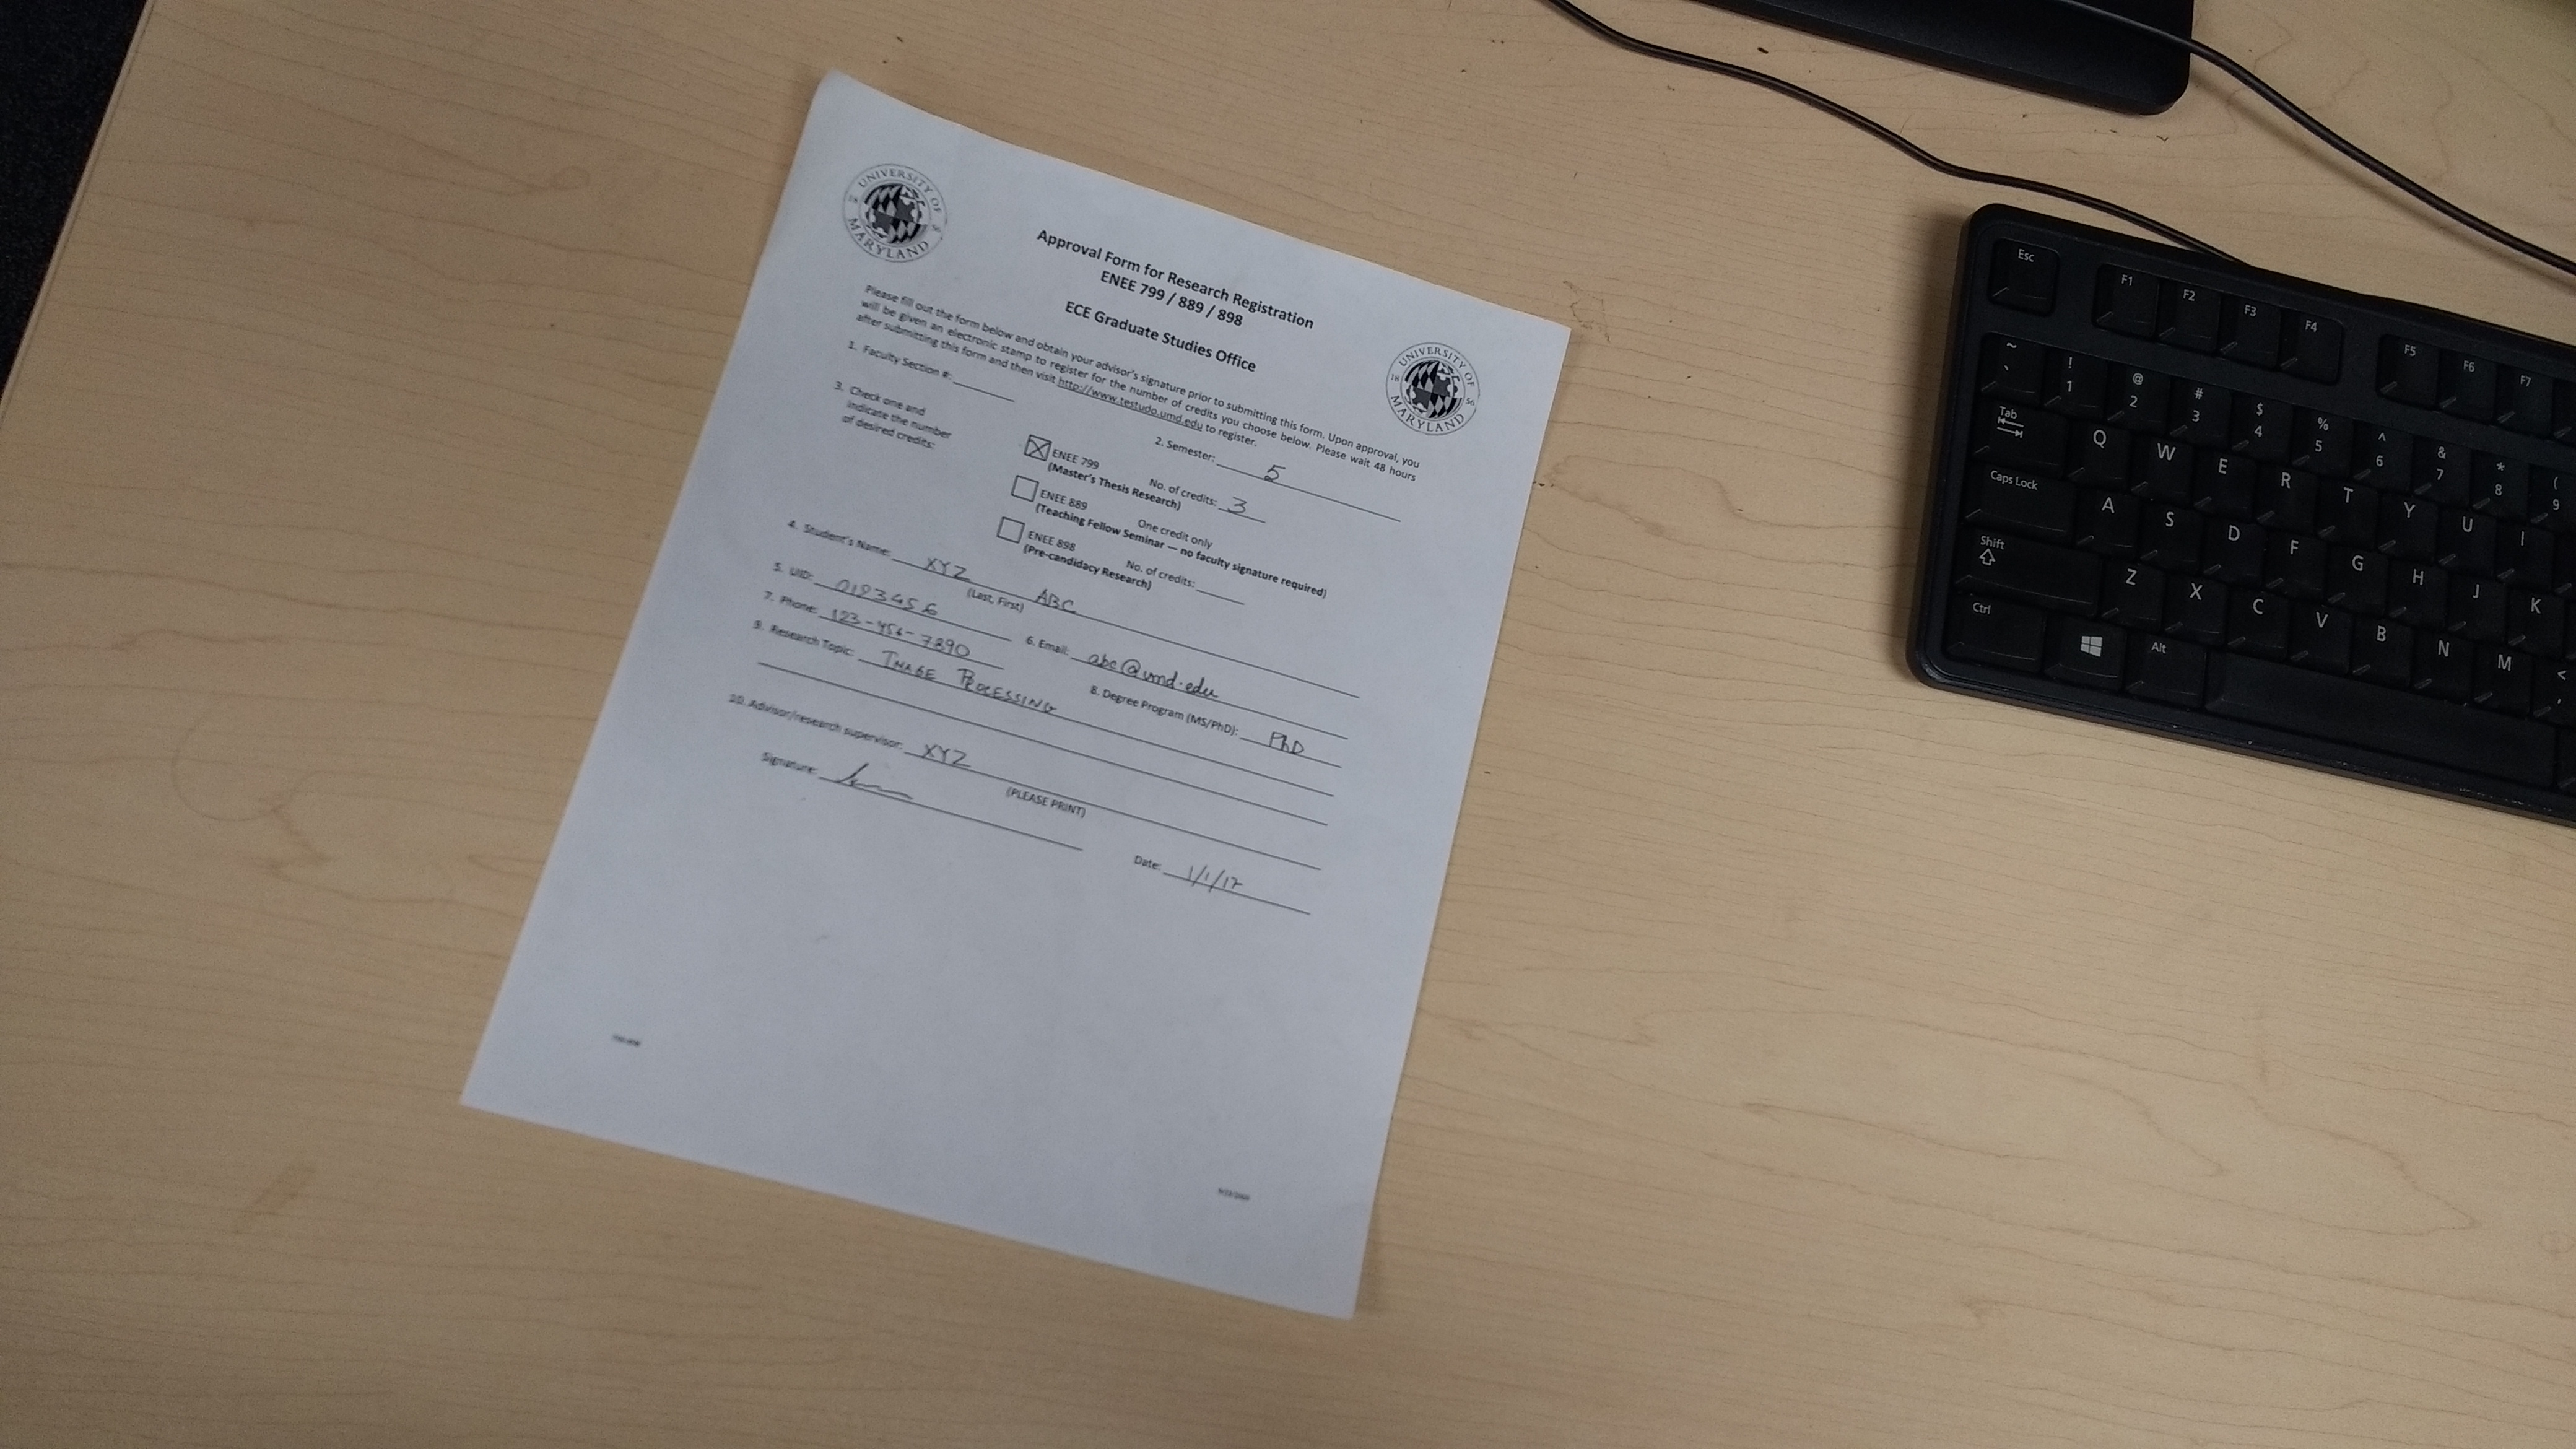 UNIVERSITY OF MARYLAND
18 56
Approval Form for Research Registration
ENEE 799 / 889 / 898
ECE Graduate Studies Office
UNIVERSITY OF MARYLAND
18 56
Please fill out the form below and obtain your advisor's signature prior to submitting this form. Upon approval, you
will be given an electronic stamp to register for the number of credits you choose below. Please wait 48 hours
after submitting this form and then visit http://www.testudo.umd.edu to register.
1. Faculty Section #:
2. Semester: 5
3. Check one and
indicate the number
of desired credits:
ENEE 799 No. of credits: 3
(Master's Thesis Research)
ENEE 889 One credit only
(Teaching Fellow Seminar — no faculty signature required)
ENEE 898 No. of credits:
(Pre-candidacy Research)
4. Student's Name: XYZ ABC
(Last, First)
5. UID: 0123456
6. Email: abc@umd.edu
7. Phone: 123-456-7890
8. Degree Program (MS/PhD): PhD
9. Research Topic: IMAGE PROCESSING
10. Advisor/research supervisor: XYZ
(PLEASE PRINT)
Signature:
Date: 1/1/17
Esc F1 F2 F3 F4 F5 F6 F7
~ ! @ # $ % ^ & * (
` 1 2 3 4 5 6 7 8 9
Tab Q W E R T Y U I
Caps Lock A S D F G H J K
Shift Z X C V B N M < ,
Ctrl Alt